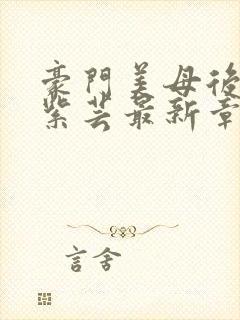 豪門美母後
紫芸最新章
言舍